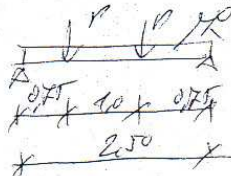 P P
0,75 1,0 0,75
2,50